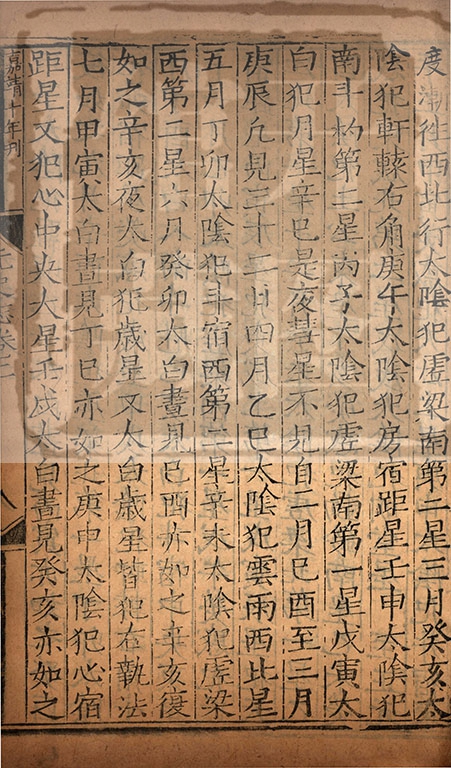 度漸徃西北行太隂犯虛梁南第二星三月癸亥太
隂犯軒轅右角庚午太隂犯房宿距星壬申太隂犯
南斗杓第二星丙子太隂犯虛梁南第一星戊寅太
白犯月星辛巳是夜彗星不見自二月巳酉至三月
庚辰凡見三十二日四月乙巳太隂犯雲雨西北星
五月丁卯太隂犯斗宿西第二星辛未太隂犯虛梁
西第二星六月癸卯太白晝見巳酉亦如之辛亥復
如之辛亥夜太白犯歲星又太白歲星皆犯右執法
七月甲寅太白晝見丁巳亦如之庚申太隂犯心宿
距星又犯心中央大星壬戌太白晝見癸亥亦如之
嘉靖十年刊
元史志卷二
八